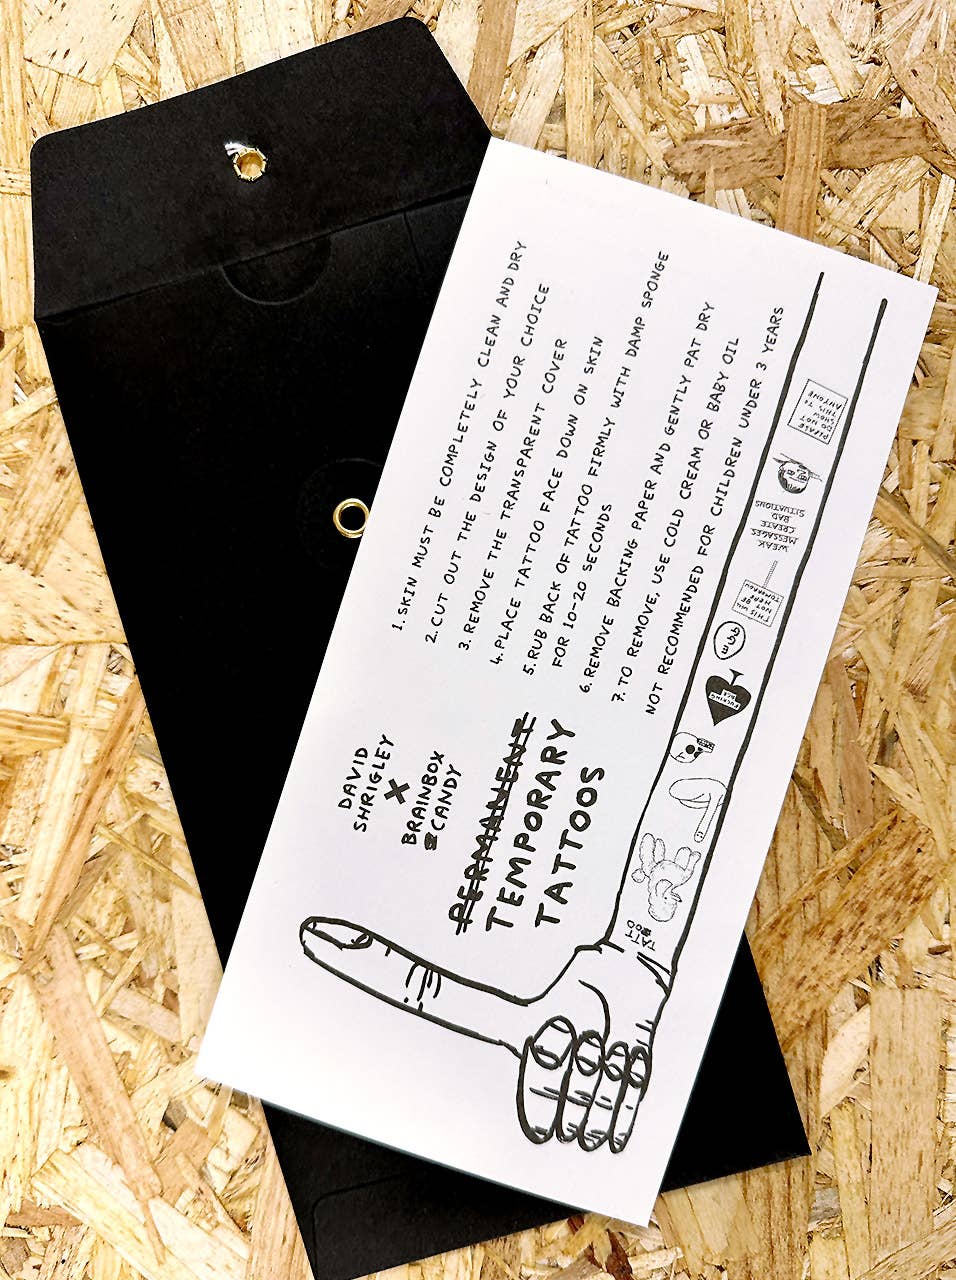 DAVID
SHRIGLEY
X
BRAINBOX
CANDY
PERMANENT
TEMPORARY
TATTOOS
1. SKIN MUST BE COMPLETELY CLEAN AND DRY
2. CUT OUT THE DESIGN OF YOUR CHOICE
3. REMOVE THE TRANSPARENT COVER
4. PLACE TATTOO FACE DOWN ON SKIN
5. RUB BACK OF TATTOO FIRMLY WITH DAMP SPONGE
FOR 10-20 SECONDS
6. REMOVE BACKING PAPER AND GENTLY PAT DRY
7. TO REMOVE, USE COLD CREAM OR BABY OIL
NOT RECOMMENDED FOR CHILDREN UNDER 3 YEARS
PLEASE
DO NOT
SHOW
THIS TO
ANYONE
WEAK
MESSAGES
CREATE
BAD
SITUATIONS
THIS WILL
NOT BE
HERE
TOMORROW
FUCKING
ACE
TATT
OO